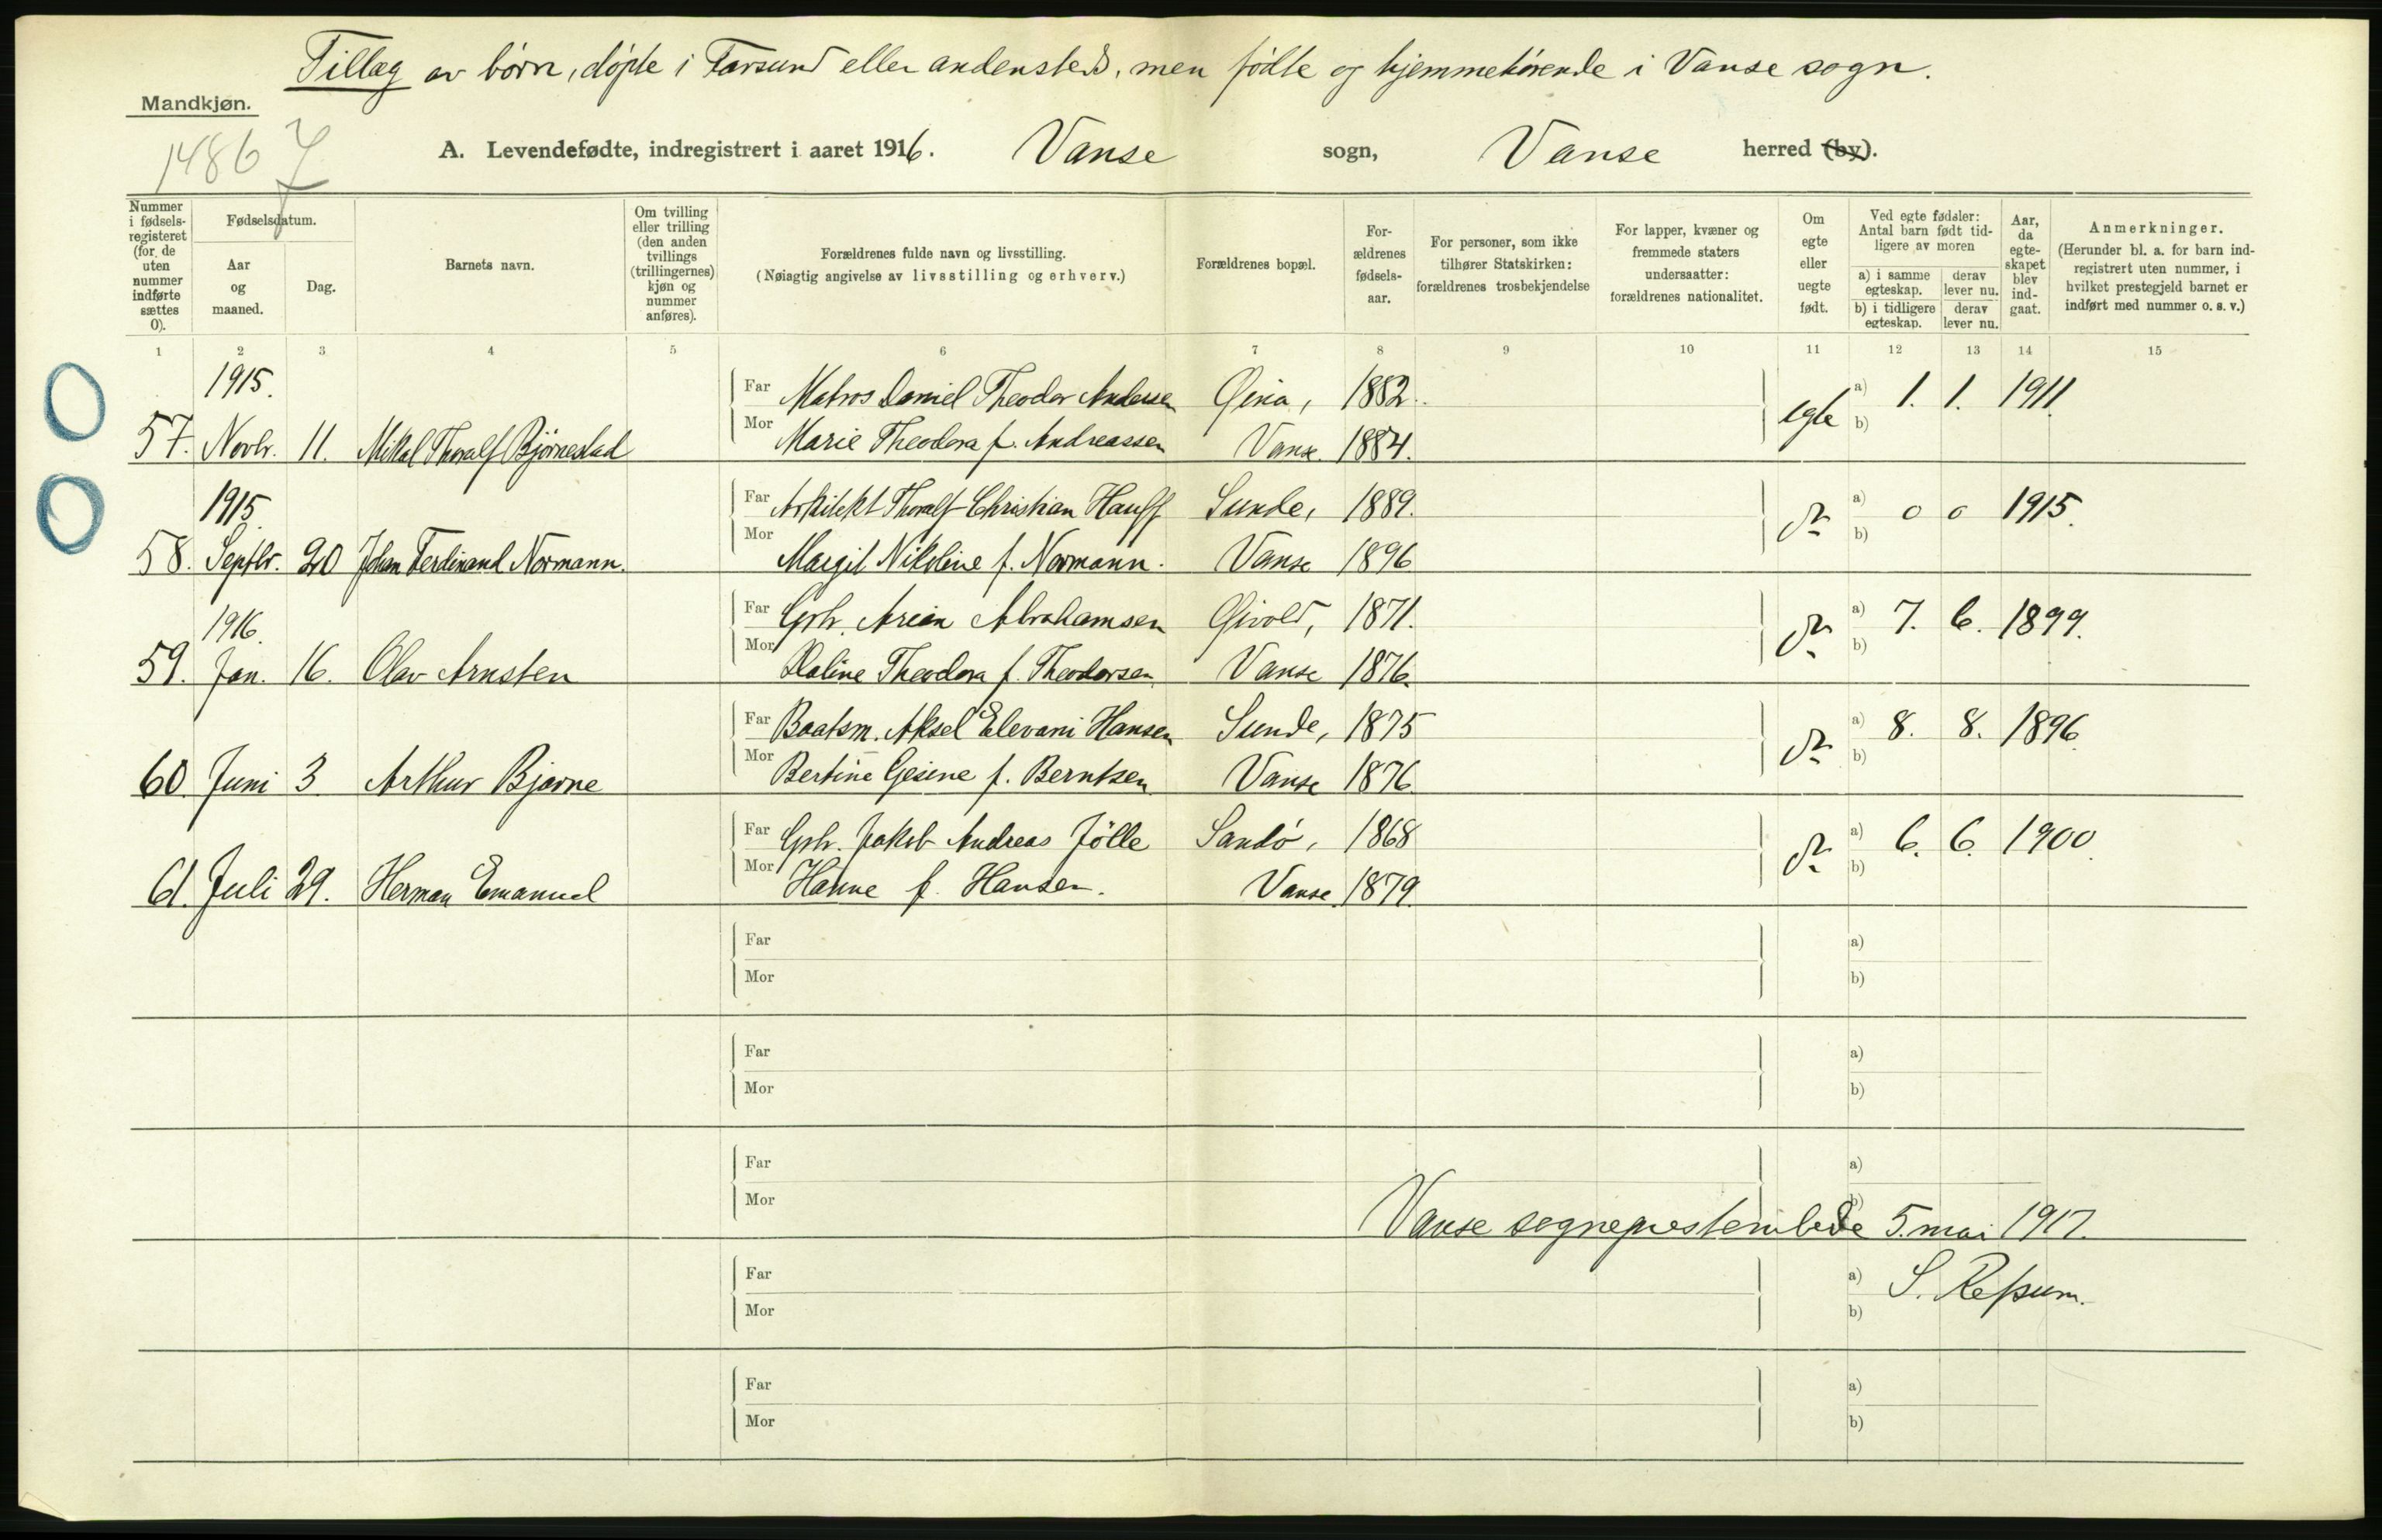 Tillæg av börn, döpte i Farsund eller andensteds, men födte og hjemmehörende i Vanse sogn.
Mandkjøn.
1486 7
A. Levendefødte, indregistrert i aaret 1916. Vanse sogn, Vanse herred (by).
Nummer i fødsels-registeret (for de uten nummer indførte sættes 0).
Fødselsdatum.
Aar og maaned.
Dag.
Barnets navn.
Om tvilling eller trilling (den anden tvillings (trillingernes) kjøn og nummer anføres).
Forældrenes fulde navn og livsstilling.
(Nøiagtig angivelse av livsstilling og erhverv.)
Forældrenes bopæl.
For-ældrenes fødsels-aar.
For personer, som ikke tilhører Statskirken: forældrenes trosbekjendelse
For lapper, kvæner og fremmede staters undersaatter: forældrenes nationalitet.
Om egte eller uegte født.
Ved egte fødsler: Antal barn født tid-ligere av moren
a) i samme egteskap. derav lever nu.
b) i tidligere egteskap. derav lever nu.
Aar, da egte-skapet blev ind-gaat.
Anmerkninger.
(Herunder bl. a. for barn ind-registrert uten nummer, i hvilket prestegjeld barnet er indført med nummer o. s. v.)
1 2 3 4 5 6 7 8 9 10 11 12 13 14 15
0 1915. Far Matros Daniel Theodor Andersen 1882. egte a) 1. 1. 1911.
57. Novbr. 11. Mikal Thoralf Björnestad Mor Marie Theodora f. Andreassen Vanse. 1884. b)
0 1915. Far Arkitekt Thoralf Christian Hauff Sunde, 1889. do a) 0 0 1915.
58. Septbr. 20 Johan Ferdinand Normann. Mor Margit Nikoline f. Normann. Vanse 1896 b)
1916. Far Grh. Arian Abrahamsen Givold, 1871. do a) 7. 6. 1899.
59. Jan. 16. Olav Arnsten Mor Theodora f. Theodorsen. Vanse 1876. b)
Far Baatsm. Aksel Elevani Hansen Sunde, 1875 do a) 8. 8. 1896.
60. Juni 3. Arthur Bjarne Mor Bertine Gesine f. Berntsen Vanse 1876. b)
Far Grh. Jakob Andreas Jölle Sandö, 1868 do a) 6. 6. 1900.
61. Juli 29. Herman Emanuel Mor Hanne f. Hansen. Vanse. 1879. b)
Far a)
Mor b)
Far a)
Mor b)
Far a)
Mor b)
Vanse sogneprestembede 5. mai 1917.
Far a) S. Refsum.
Mor b)
Far a)
Mor b)